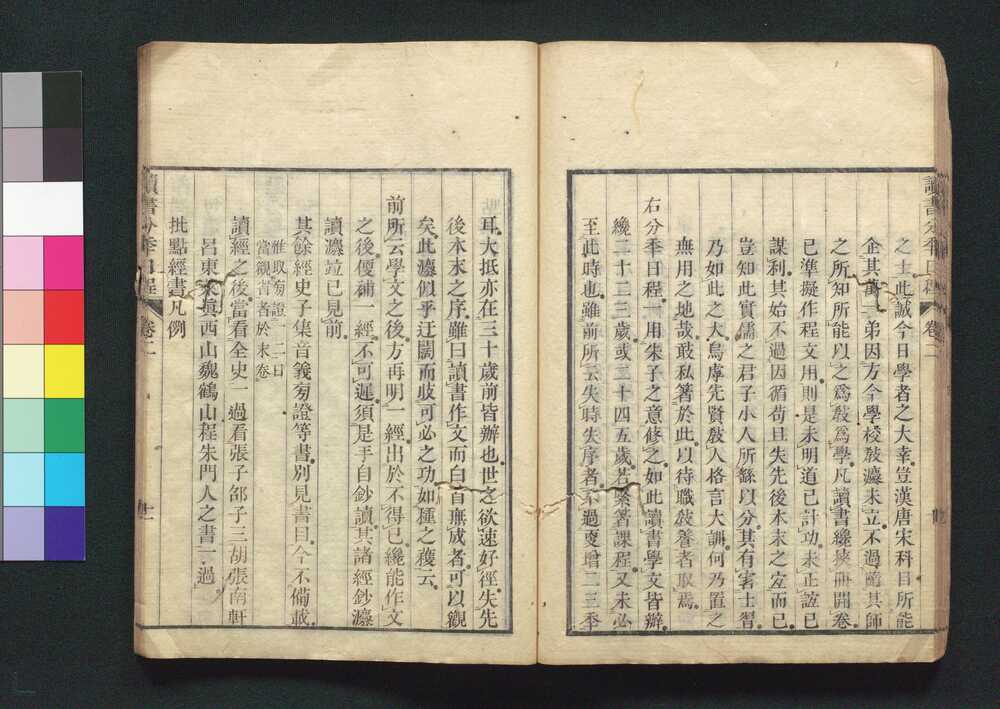 讀書分年日程　卷二
之士此誠今日學者之大幸豈漢唐宋科目所能
企其萬一第因方今學校敎灋未立不過隨其師
之所知所能以之爲敎爲學凡讀書纔挾冊開卷
已準擬作程文用則是未明道已計功未正誼已
謀利其始不過因循苟且失先後本末之宜而已
豈知此實儒之君子小人所繇以分其有害士習
乃如此之大烏虖先賢敎人格言大訓何乃置之
無用之地哉敢私著於此以待職敎養者取焉
右分秊日程一用朱子之意修之如此讀書學文皆辦
纔二十二三歲或二十四五歲若緊著課程又未必
至此時也雖前所云失時失序者不過更增二三秊
耳大抵亦在三十歲前皆辦也世之欲速好徑失先
後本末之序雖曰讀書作文而白首無成者可以觀
矣此灋似乎迂闊而收可必之功如種之穫云
前所云學文之後方再明一經出於不得已纔能作文
之後便補一經不可遲須是手自鈔讀其諸經鈔灋
讀灋竝已見前
其餘經史子集音義㫄證等書別見書目今不備載
雜取㫄證一二日
當觀者者於末卷
讀經之後當看全史一過看張子邵子三胡張南軒
呂東萊眞西山魏鶴山程朱門人之書一過
批點經書凡例
讀書分年日程　卷二